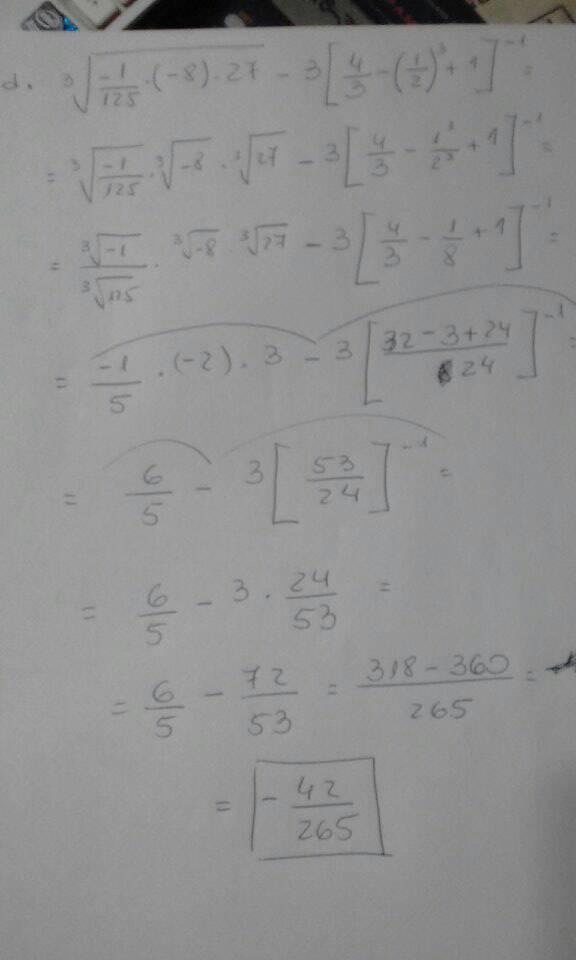 d. ∛(-1/125 · (-8) · 27) - 3[4/3 - (1/2)³ + 1]⁻¹ =
= ∛(-1/125) · ∛-8 · ∛27 - 3[4/3 - 1³/2³ + 1]⁻¹ =
= ∛-1/∛125 · ∛-8 · ∛27 - 3[4/3 - 1/8 + 1]⁻¹ =
= -1/5 · (-2) · 3 - 3[(32 - 3 + 24)/24]⁻¹ =
= 6/5 - 3[53/24]⁻¹ =
= 6/5 - 3 · 24/53 =
= 6/5 - 72/53 = (318 - 360)/265 =
= -42/265